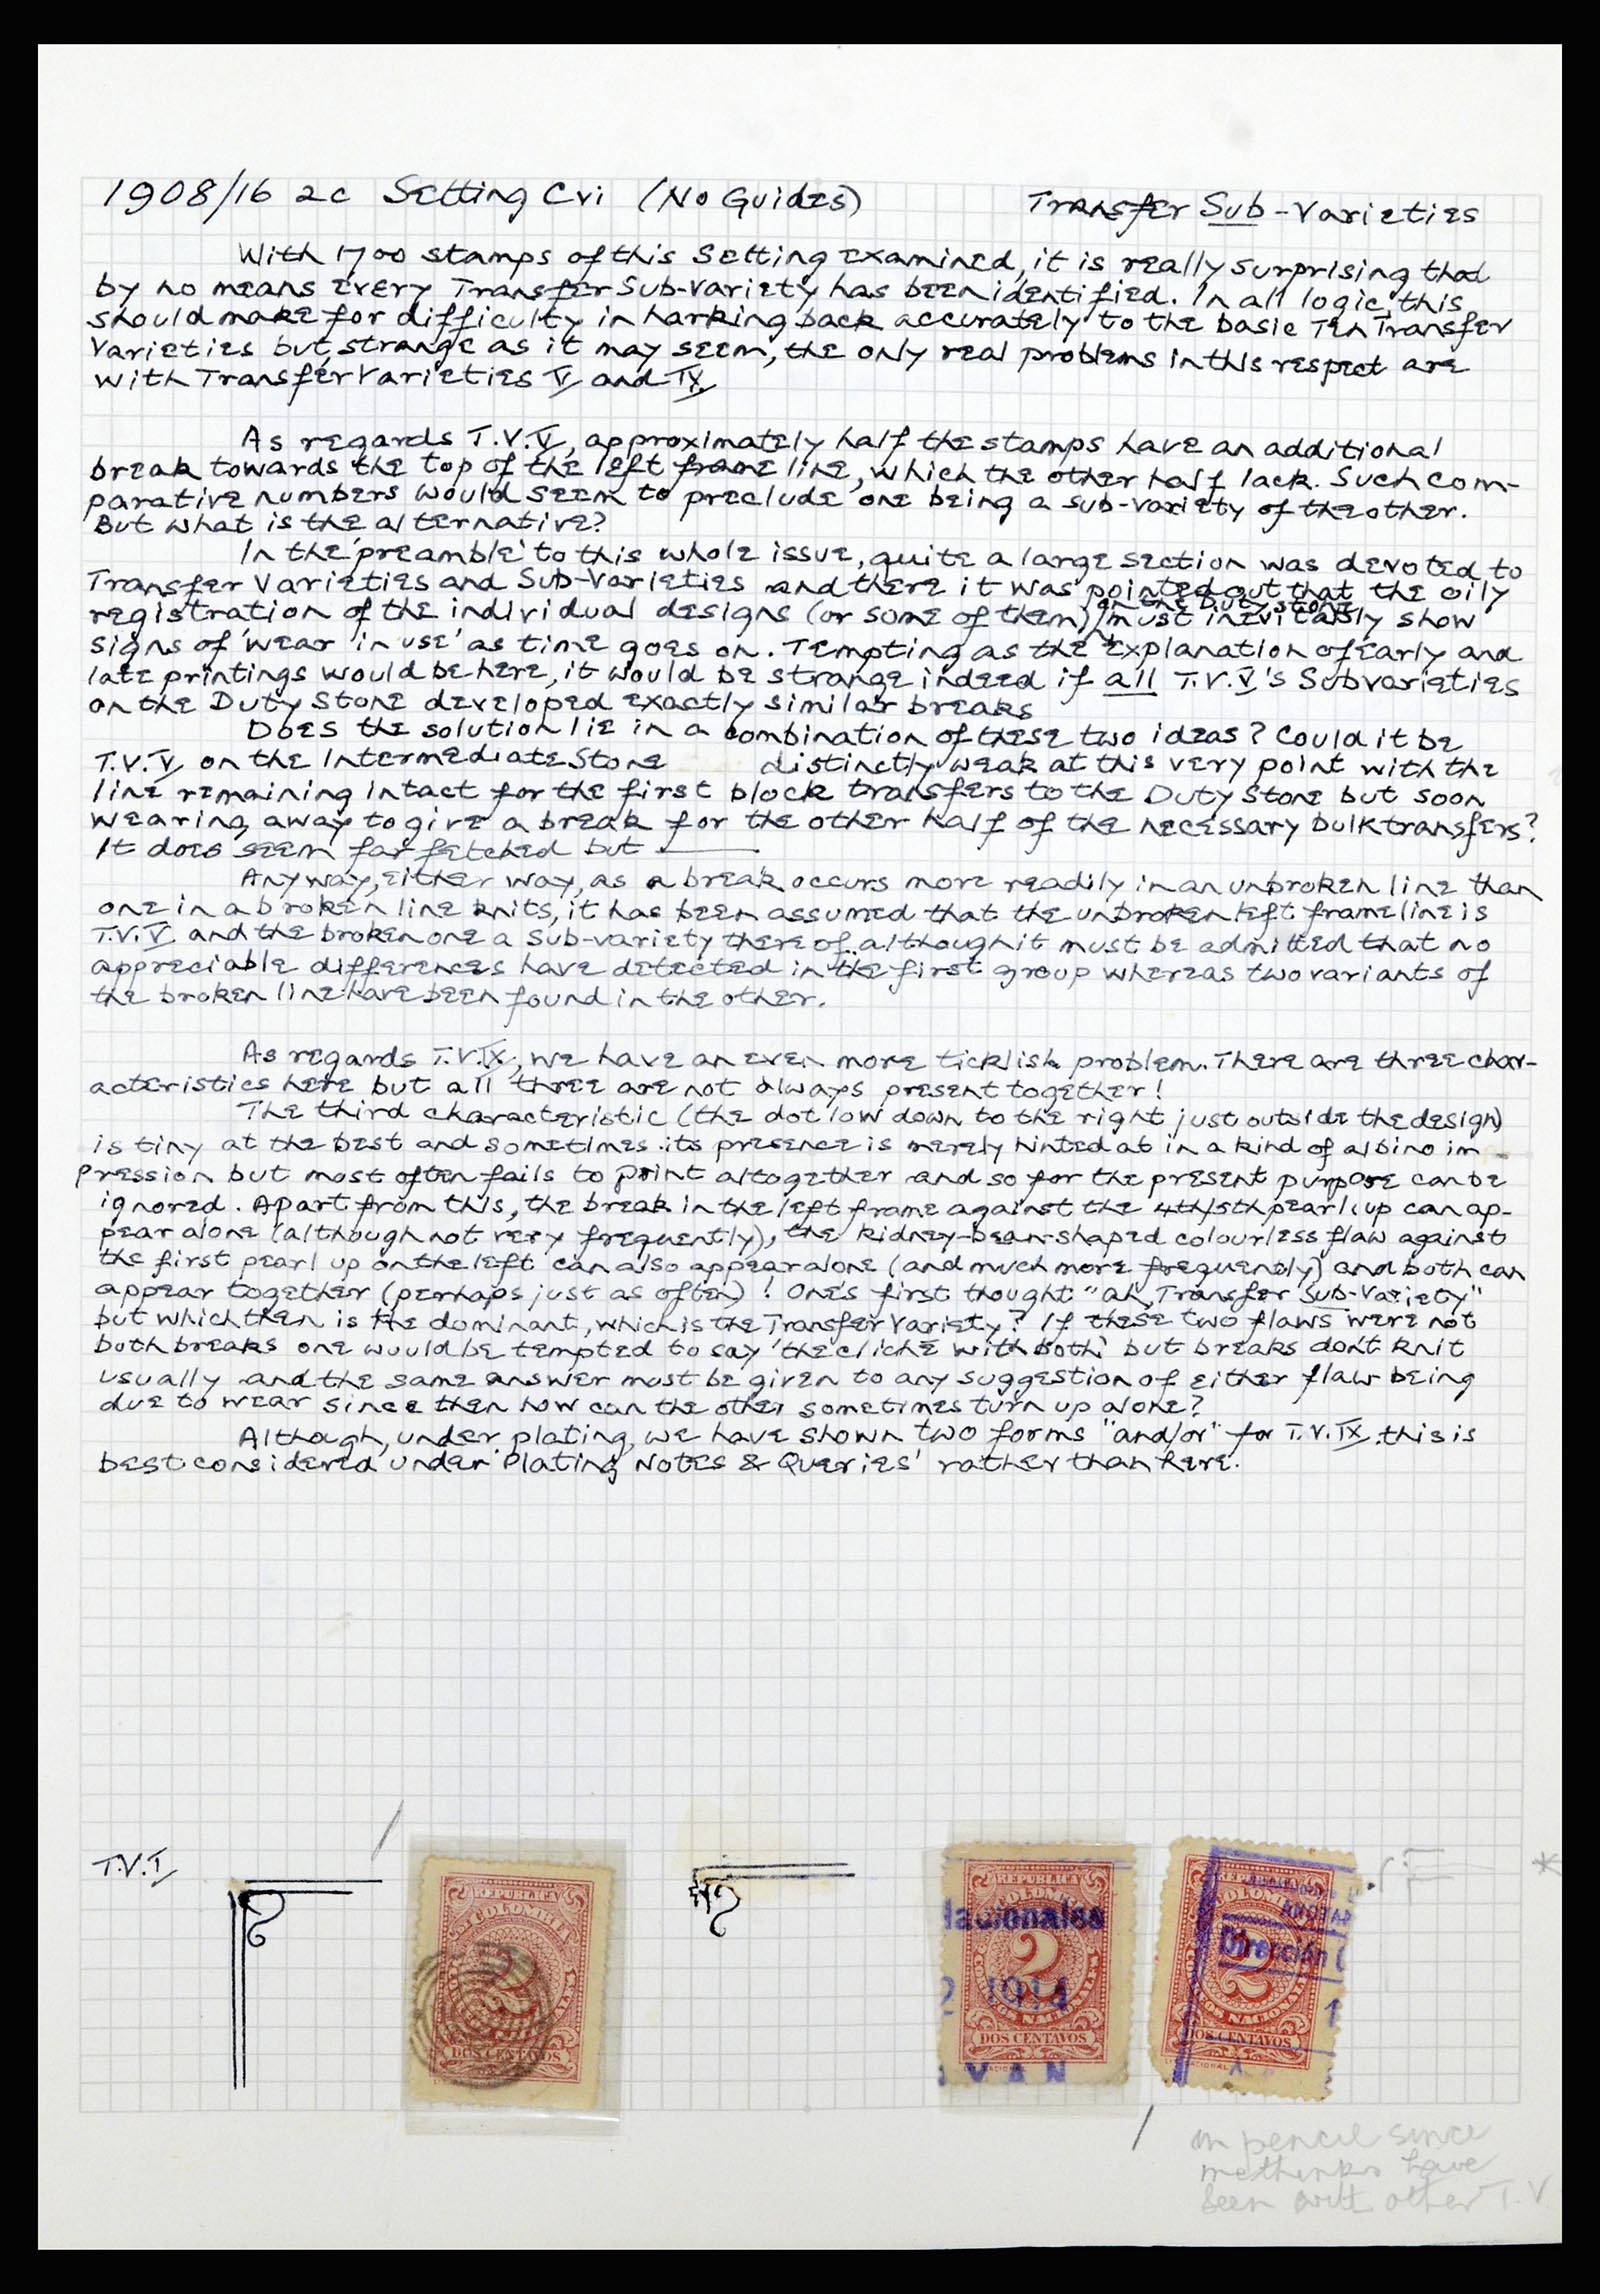 1908/16 2c Setting Cvi (No Guides) Transfer Sub-Varieties
With 1700 stamps of this Setting examined, it is really surprising that
by no means every Transfer Sub-Variety has been identified. In all logic, this
should make for difficulty in harking back accurately to the basic Ten Transfer
Varieties but, strange as it may seem, the only real problems in this respect are
with Transfer Varieties V and IX.
As regards T.V.V, approximately half the stamps have an additional
break towards the top of the left frame line, which the other half lack. Such com-
parative numbers would seem to preclude one being a sub-variety of the other.
But what is the alternative?
In the 'preamble' to this whole issue, quite a large section was devoted to
Transfer Varieties and Sub-Varieties and there it was pointed out that the oily
on the Duty Stone
registration of the individual designs (or some of them) must inevitably show
signs of 'wear in use' as time goes on. Tempting as the explanation of early and
late printings would be here, it would be strange indeed if all T.V.V's Subvarieties
on the Duty Stone developed exactly similar breaks
Does the solution lie in a combination of these two ideas? Could it be
T.V.V on the Intermediate Stone distinctly weak at this very point with the
line remaining intact for the first block transfers to the Duty Stone but soon
wearing away to give a break for the other half of the necessary bulk transfers?
It does seem far fetched but
Anyway, either way, as a break occurs more readily in an unbroken line than
one in a broken line knits, it has been assumed that the unbroken left frame line is
T.V.V and the broken one a Sub-variety there of although it must be admitted that no
appreciable differences have detected in the first group whereas two variants of
the broken line have been found in the other.
As regards T.V.IX, we have an even more ticklish problem. There are three char-
acteristics here but all three are not always present together!
The third characteristic (the dot low down to the right just outside the design)
is tiny at the best and sometimes its presence is merely hinted at in a kind of albino im-
pression but most often fails to print altogether and so for the present purpose can be
ignored. Apart from this, the break in the left frame against the 4th/5th pearl up can ap-
pear alone (although not very frequently), the kidney-bean-shaped colourless flaw against
the first pearl up on the left can also appear alone (and much more frequently) and both can
appear together (perhaps just as often)! One's first thought "ah, Transfer Sub-Variety"
but which then is the dominant, which is the Transfer Variety? If these two flaws were not
both breaks one would be tempted to say 'the cliché with both' but breaks don't knit
usually and the same answer must be given to any suggestion of either flaw being
due to wear since then how can the other sometimes turn up alone?
Although, under plating, we have shown two forms "and/or" for T.V.IX, this is
best considered under 'Plating Notes & Queries' rather than here.
T.V.I
REPUBLICA
COLOMBIA
2
DOS CENTAVOS
REPUBLICA
COLOMBIA
Nacionales
2
2 1914
NACIONAL
DOS CENTAVOS
YAN
REPUBLICA
COLOMBIA
Dirección
2
NACIONAL
DOS CENTAVOS
1
*
in pencil since
methinks have
seen with other T.V